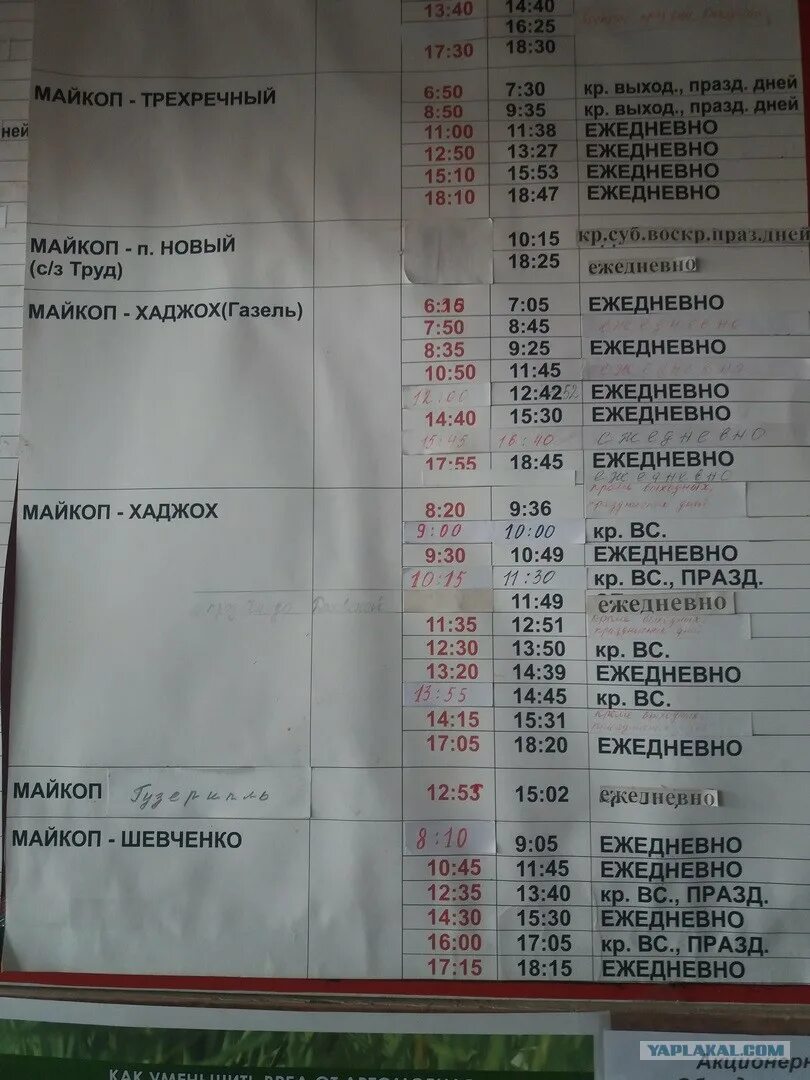 13:40 14:40
16:25
17:30 18:30
МАЙКОП - ТРЕХРЕЧНЫЙ 6:50 7:30 кр. выход., празд. дней
8:50 9:35 кр. выход., празд. дней
ней 11:00 11:38 ЕЖЕДНЕВНО
12:50 13:27 ЕЖЕДНЕВНО
15:10 15:53 ЕЖЕДНЕВНО
18:10 18:47 ЕЖЕДНЕВНО
МАЙКОП - п. НОВЫЙ 10:15 кр.суб.воскр.праз.дней
(с/з Труд) 18:25 ежедневно
МАЙКОП - ХАДЖОХ(Газель) 6:16 7:05 ЕЖЕДНЕВНО
7:50 8:45 ежедневно
8:35 9:25 ЕЖЕДНЕВНО
10:50 11:45 ежедневно
12:00 12:42 52 ЕЖЕДНЕВНО
14:40 15:30 ЕЖЕДНЕВНО
15:45 16:40 ежедневно
17:55 18:45 ЕЖЕДНЕВНО
ежедневно
МАЙКОП - ХАДЖОХ 8:20 9:36 кроме выходных, праздничных дней
9:00 10:00 кр. ВС.
9:30 10:49 ЕЖЕДНЕВНО
10:15 11:30 кр. ВС., ПРАЗД.
11:49 ежедневно
11:35 12:51 кроме выходных праздничных дней
12:30 13:50 кр. ВС.
13:20 14:39 ЕЖЕДНЕВНО
13:55 14:45 кр. ВС.
14:15 15:31 кроме выходных
17:05 18:20 ЕЖЕДНЕВНО
МАЙКОП Гузерипль 12:55 15:02 ежедневно
МАЙКОП - ШЕВЧЕНКО 8:10 9:05 ЕЖЕДНЕВНО
10:45 11:45 ЕЖЕДНЕВНО
12:35 13:40 кр. ВС., ПРАЗД.
14:30 15:30 ЕЖЕДНЕВНО
16:00 17:05 кр. ВС., ПРАЗД.
17:15 18:15 ЕЖЕДНЕВНО
YAPLAKAL.COM
Акционерн
КАК УМЕНЬШИТЬ ВРЕД ОТ